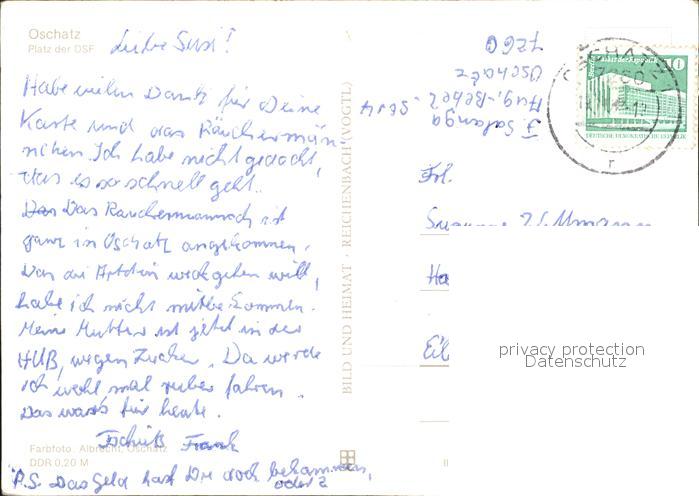 Oschatz
Platz der DSF
Liebe Susi!
Habe vielen Dank für Deine
Karte und das Räuchermän-
nchen. Ich habe nicht gedacht,
das es so schnell geht.
Das Räuchermännch ist
ganz in Oschatz angekommen.
Das du weggehen willst,
habe ich nicht mitbekommen.
Meine Mutter ist jetzt in der
wegen Zucker. Da werde
ich wohl mal rüber fahren.
Das war's für heute.
Tschüß Frank
P.S. Das Geld hast Du doch bekommen,
oder?
Farbfoto Albrecht, Oschatz
DDR 0,20 M
BILD UND HEIMAT · REICHENBACH (VOGTL)
F.
Aug.-Bebel-Str
Oschatz
7260
OSCHATZ 1
7260
10
DEUTSCHE DEMOKRATISCHE REPUBLIK
Frl.
Ha
Eil
privacy protection
Datenschutz